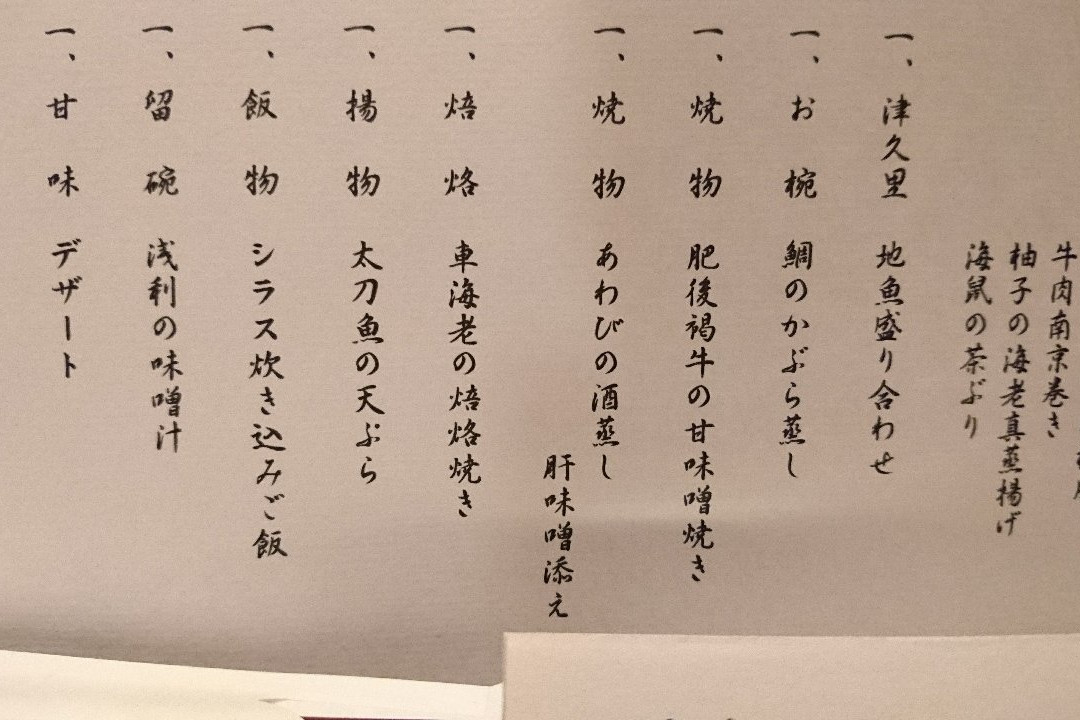 牛肉南京巻き
柚子の海老真蒸揚げ
海鼠の茶ぶり
一、津久里 地魚盛り合わせ
一、お椀 鯛のかぶら蒸し
一、焼物 肥後褐牛の甘味噌焼き
一、焼物 あわびの酒蒸し
肝味噌添え
一、焙烙 車海老の焙烙焼き
一、揚物 太刀魚の天ぷら
一、飯物 シラス炊き込みご飯
一、留碗 浅利の味噌汁
一、甘味 デザート